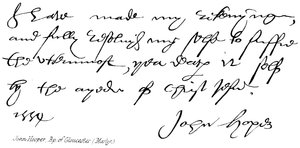 I have made my rekenyng,
and fully resolvid my self to suffre
the uttermost, yea death it self
by the ayde of Christ Jesu.
1554 John Hoper
John Hooper, Bp. of Gloucester (Martyr)